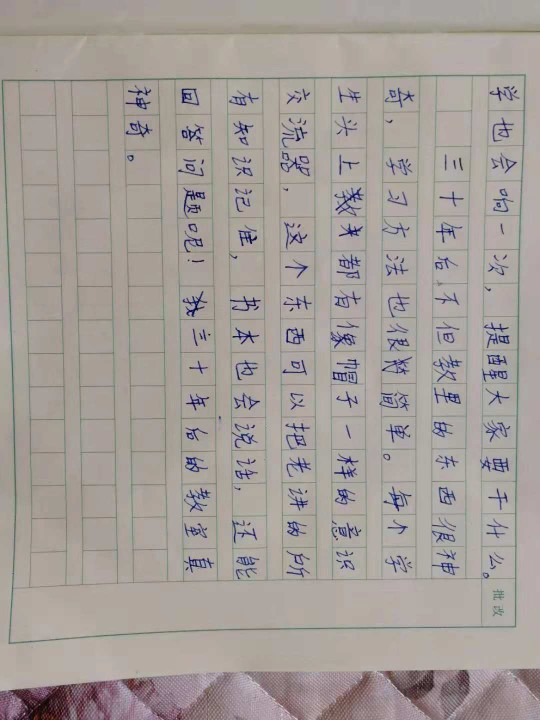 学也会响一次，提醒大家要干什么。
三十年后,不但教里的东西很神
奇，学习方法也很简单。每个学
生头上都有像帽子一样的意识
交流器，这个东西可以把老讲的所
有知识记住，书本也会说话，还能
回答问题呢！三十年后的教室真
神奇。
批改